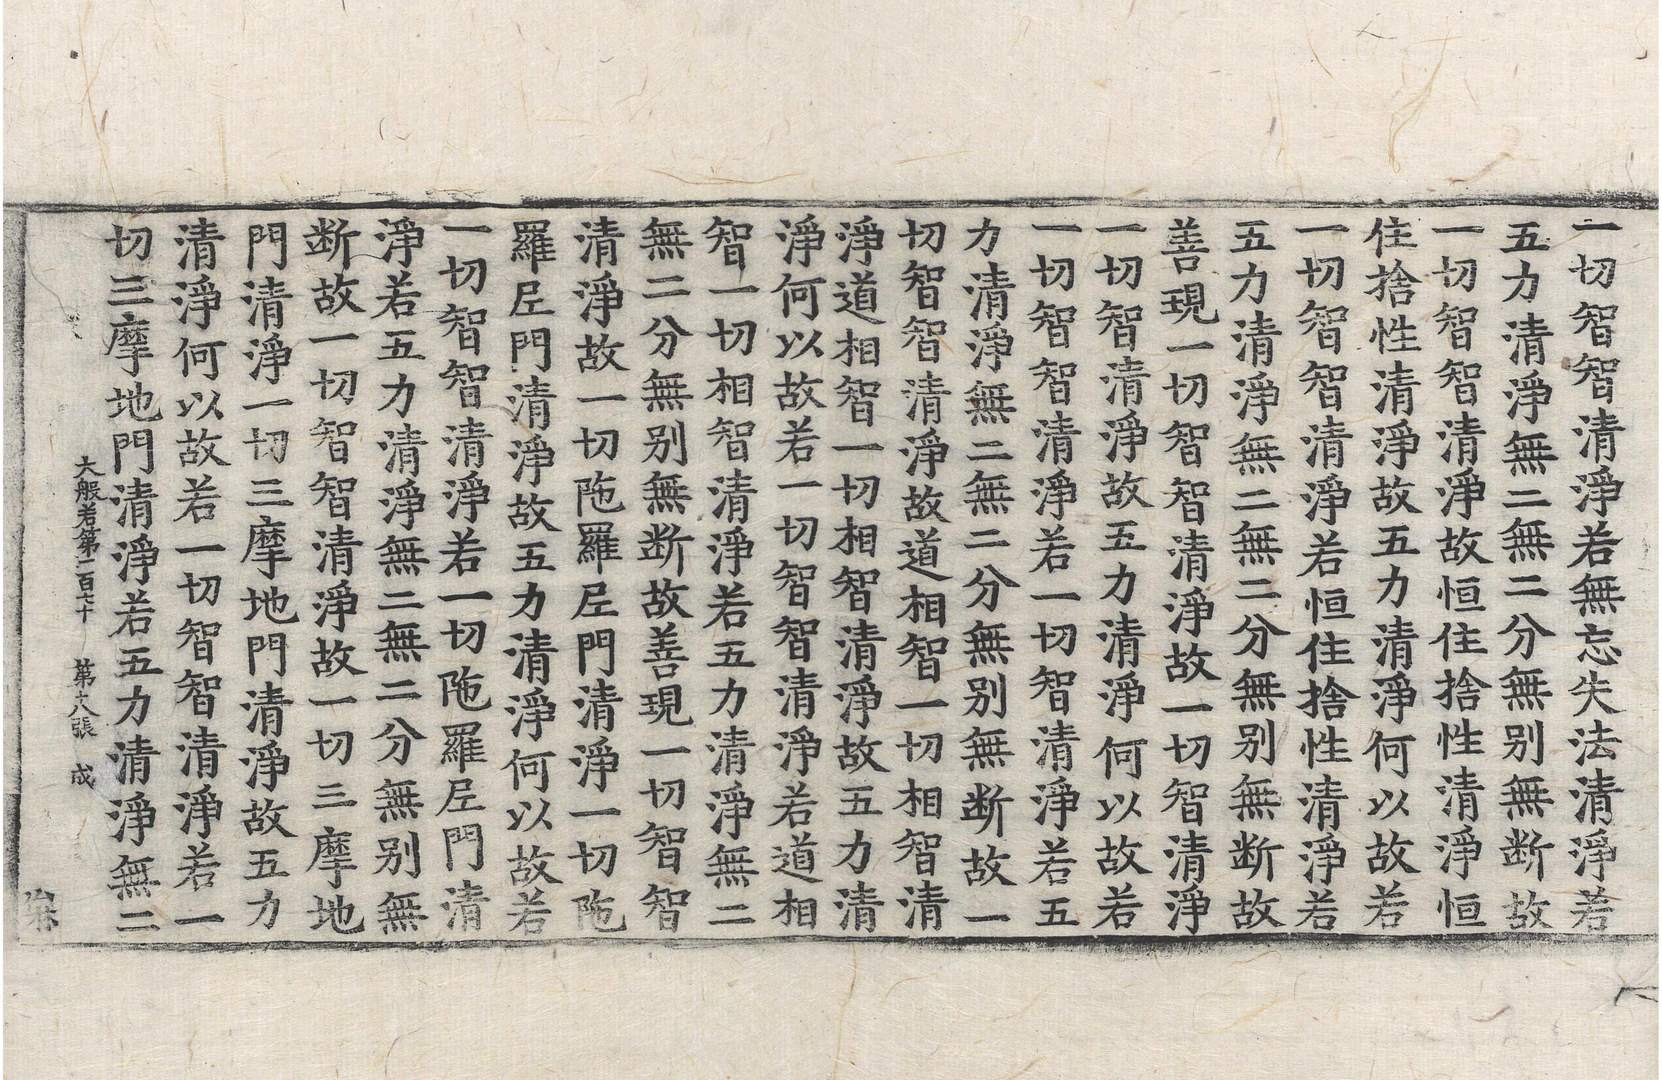 一切智智清淨若無忘失法清淨若
五力清淨無二無二分無别無断故
一切智智清淨故恒住捨性清淨恒
住捨性清淨故五力清淨何以故若
一切智智清淨若恒住捨性清淨若
五力清淨無二無二分無别無断故
善現一切智智清淨故一切智清淨
一切智清淨故五力清淨何以故若
一切智智清淨若一切智清淨若五
力清淨無二無二分無别無断故一
切智智清淨故道相智一切相智清
淨道相智一切相智清淨故五力清
淨何以故若一切智智清淨若道相
智一切相智清淨若五力清淨無二
無二分無别無断故善現一切智智
清淨故一切陁羅尼門清淨一切陁
羅尼門清淨故五力清淨何以故若
一切智智清淨若一切陁羅尼門清
淨若五力清淨無二無二分無别無
断故一切智智清淨故一切三摩地
門清淨一切三摩地門清淨故五力
清淨何以故若一切智智清淨若一
切三摩地門清淨若五力清淨無二
大般若第二百六十 第六張 成